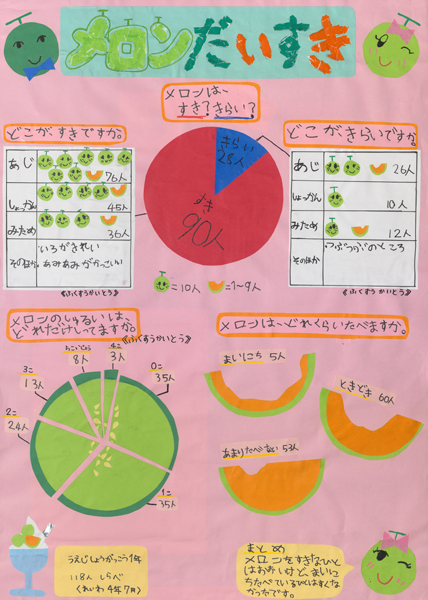 メロンだいすき
メロンは、
すき？きらい？
どこが、すきですか。
あじ
76人
しょっかん
45人
みため
36人
そのほか
いろがきれい
あみあみがかっこいい
《ふくすうかいとう》
きらい
28人
すき
90人
=10人
=1〜9人
どこがきらいですか。
あじ
26人
しょっかん
10人
みため
12人
そのほか
つぶつぶのところ
《ふくすうかいとう》
メロンのしゅるいは、
どれだけしってますか。
《ふくすうかいとう》
8人
4こ
3人
3こ
13人
2こ
24人
0こ
35人
1こ
35人
メロンは〜どれくらいたべますか。
まいにち 5人
ときどき 60人
あまりたべない 53人
うえじしょうがっこう1年
118人 しらべ
(れいわ4年7月)
まとめ
メロンをすきなひと
はおおいけど、まいに
ちたべているひとはすくな
かったです。